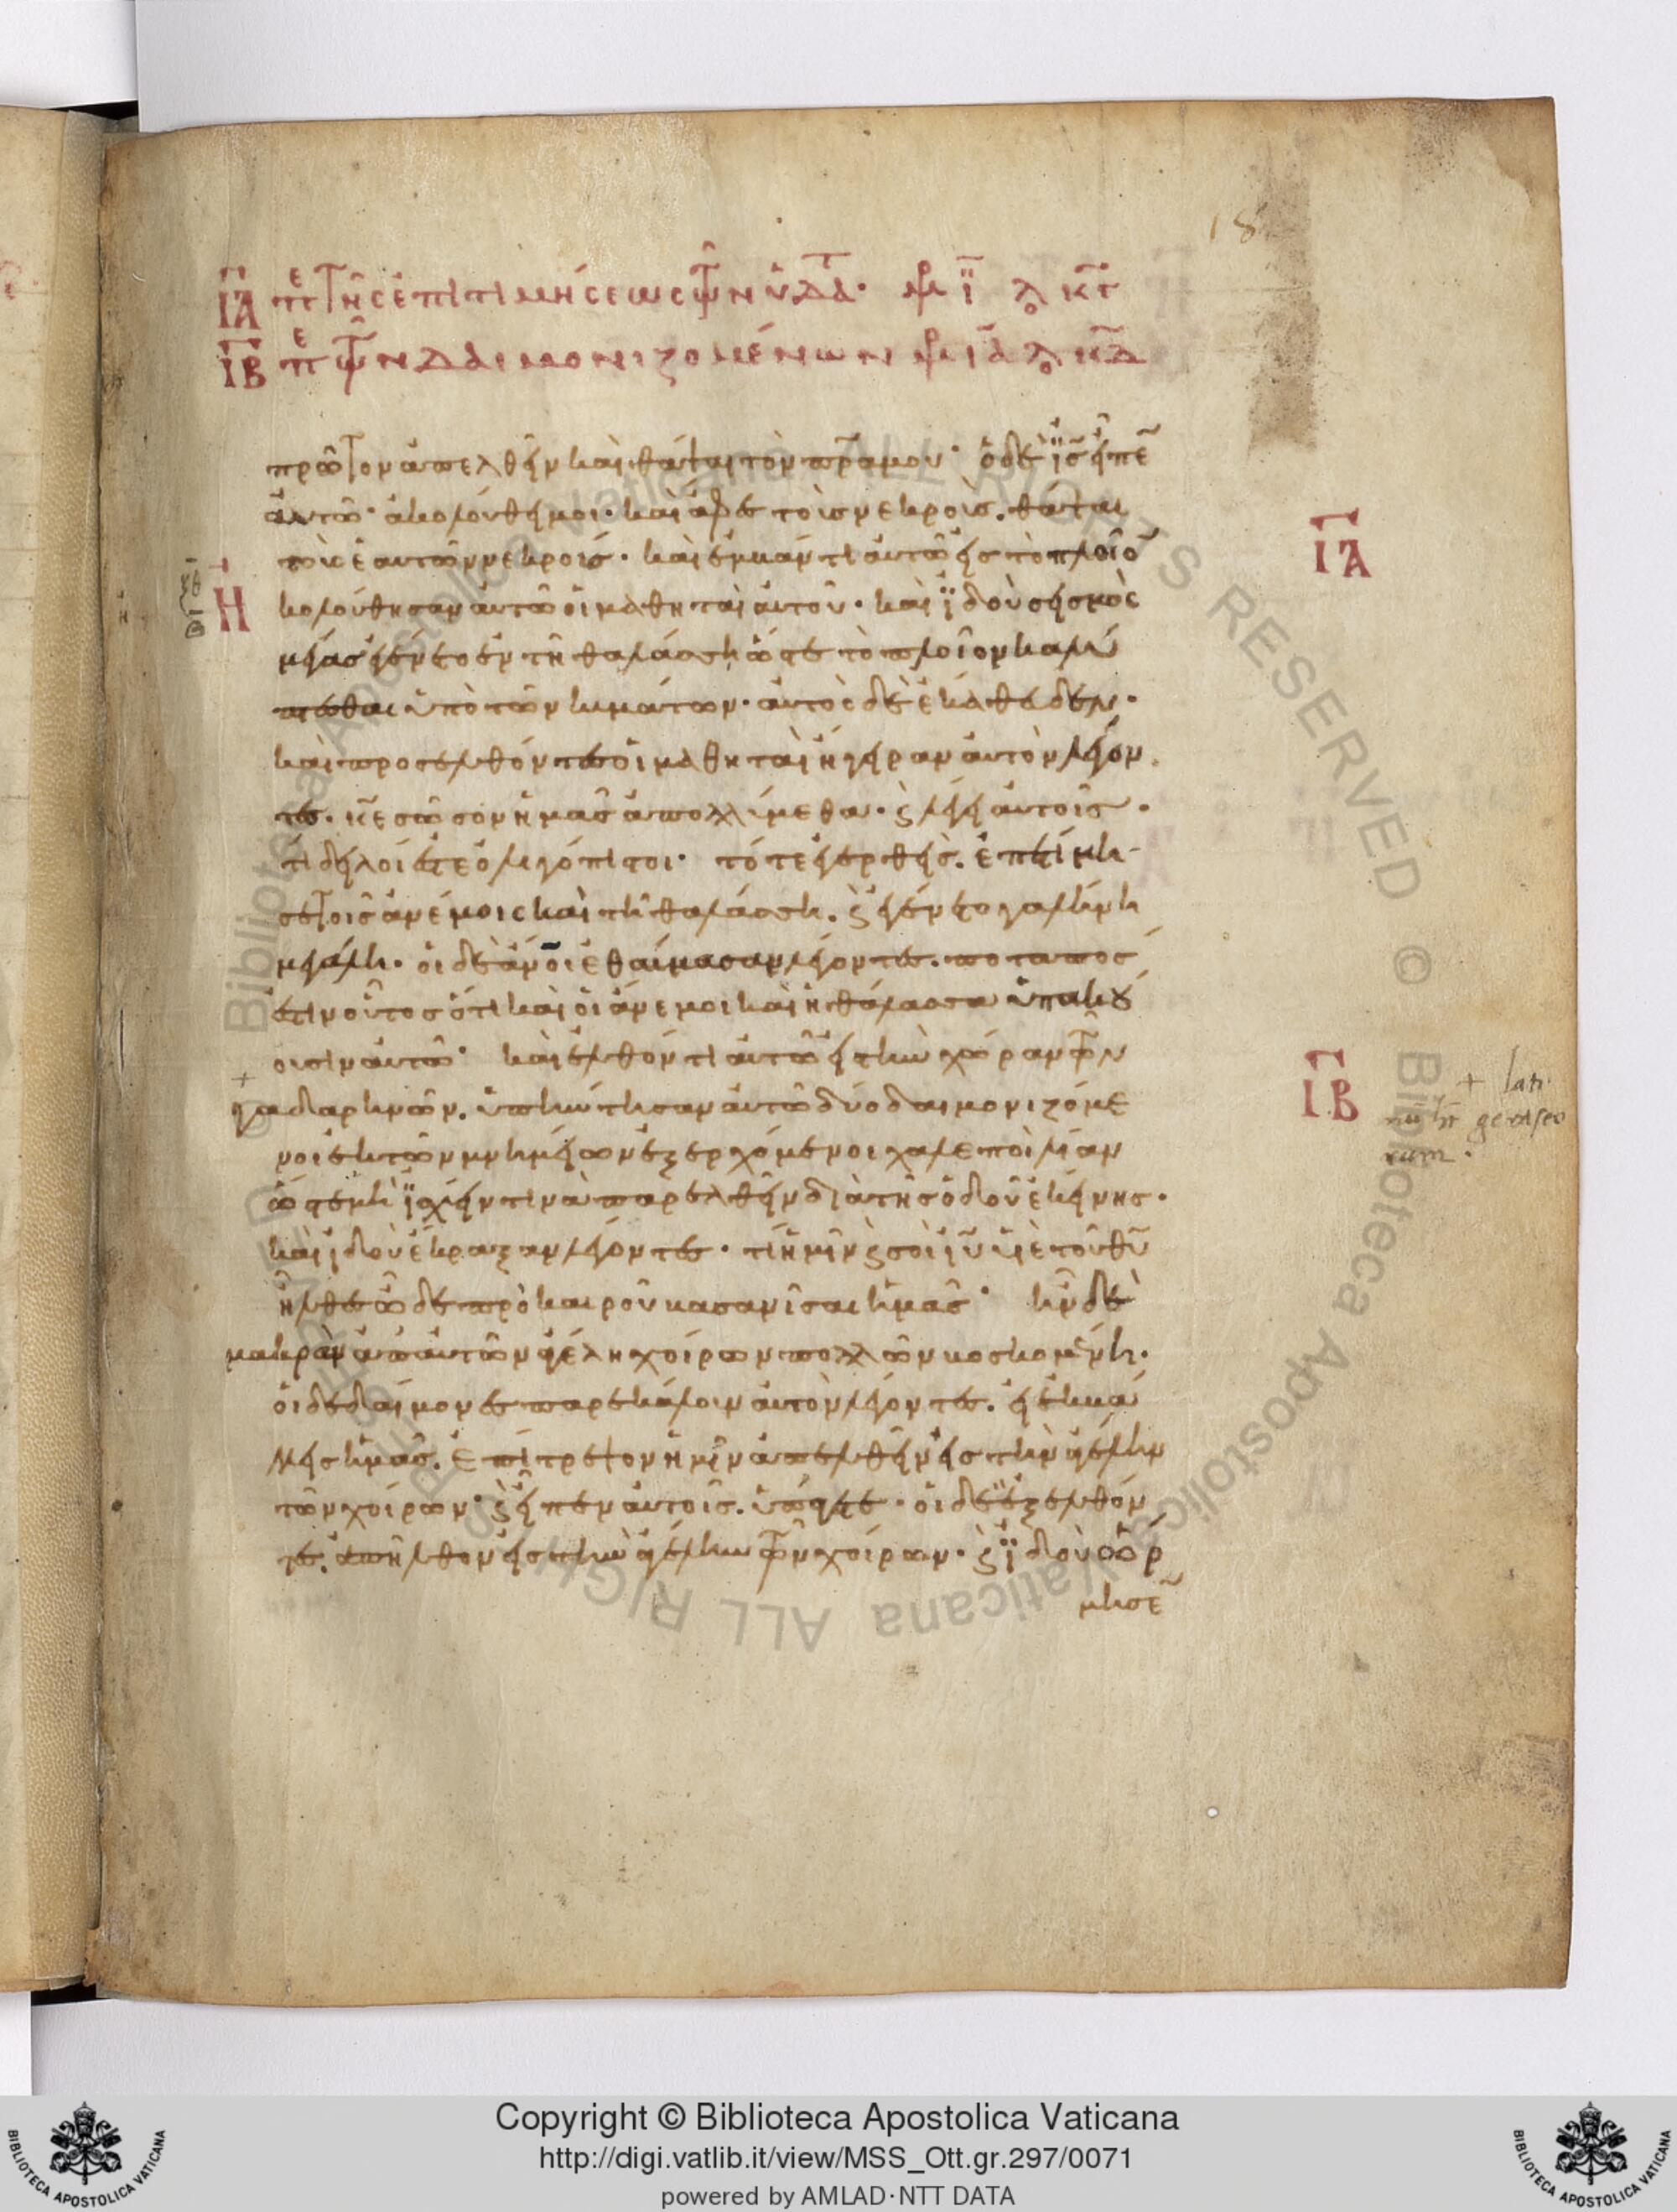 18
ΙΑ πε της επιτιμησεως των υδατ· μρ ϊ λο κγ
ΙΒ πε των δαιμονιζομενων μρ ια λο κδ
πρῶτον ἀπελθεῖν καὶ θάψαι τὸν πρα μου· ὁ δὲ ϊς εἶπε
αὐτῶ· ἀκολούθει μοι· καὶ ἄφες τοὺς νεκροὺς. θάψαι
τοὺς ἑαυτῶν νεκρούς· καὶ ἐμβάντι αὐτῶ εἰς τὸ πλοῖο
Η
κολούθησαν αὐτῶ οἱ μαθηταὶ αὐτοῦ· καὶ ϊδοὺ σεισμὸς
μέγας ἐγένετο ἐν τῆ θαλάσση, ὥστε τὸ πλοῖον καλύ
πτεσθαι ὑπὸ τῶν κυμάτων· αὐτὸς δὲ ἐκάθευδεν·
καὶ προσελθόντες οἱ μαθηταὶ ἤγειραν αὐτὸν λέγον
τες· κε σῶσον ἡμᾶς ἀπολλύμεθα· ϛ λέγει αὐτοῖς·
τί δειλοί ἐστε ὀλιγόπιστοι· τότε ἐγερθεὶς. ἐπετίμη
σε τοῖς ἀνέμοις καὶ τῆ θαλάσση. ϛ ἐγένετο γαλήνη
μεγάλη· οἱ δὲ ἀνοι ἐθαύμασαν λέγοντες. ποταπός
ἐστιν οὗτος ὅτι καὶ οἱ ἄνεμοι καὶ ἡ θάλασσα ὑπακού
ουσιν αὐτῶ· καὶ ἐλθόντι αὐτῶ εἰς τὴν χώραν τῶν
γαδαρηνῶν. ὑπήντησαν αὐτῶ δύο δαιμονιζόμε
νοι ἐκ τῶν μνημείων ἐξερχόμενοι χαλεποὶ λίαν
ὥστε μὴ ϊσχύειν τινὰ παρελθεῖν διὰ τῆς ὁδοῦ ἐκείνης·
καὶ ἰδοὺ ἔκραξαν λέγοντες· τί ἡμῖν ϛ σοὶ ιυ υἱὲ τοῦ θυ
ἦλθες ὧδε πρὸ καιροῦ βασανῖσαι ἡμᾶς· ἦν δὲ
μακρὰν ἀπ αὐτῶν ἀγέλη χοίρων πολλῶν βοσκομένη·
οἱ δὲ δαίμονες παρεκάλουν αὐτὸν λέγοντες. εἰ ἐκβάλ
λεις ἡμᾶς. ἐπίτρεψον ἡμῖν ἀπελθεῖν εἰς τὴν ἀγέλην
τῶν χοίρων· ϛ εἶπεν αὐτοῖς. ὑπάγετε· οἱ δὲ ἐξελθόν
τες. ἀπῆλθον εἰς τὴν ἀγέλην τῶν χοίρων· ϛ ϊδοὺ ὥρ
μησε
ΙΑ
ΙΒ
+ lati
geraseno
rum.
Copyright © Biblioteca Apostolica Vaticana
http://digi.vatlib.it/view/MSS_Ott.gr.297/0071
powered by AMLAD·NTT DATA
BIBLIOTECA APOSTOLICA VATICANA
BIBLIOTECA APOSTOLICA VATICANA